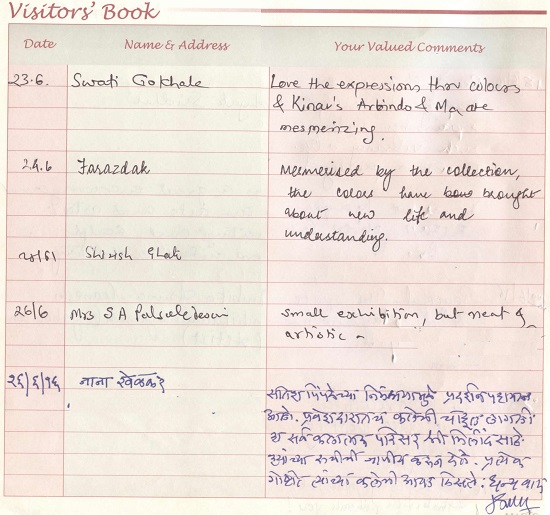 Visitors' Book
Date Name & Address Your Valued Comments
23.6. Swati Gokhale Love the expressions thru colours
& Kinar's Arbindo & Ma are
mesmerizing.
24.6 Farazdak Mesmerised by the collection,
the colors have brought
about new life and
understanding.
Shirish Ghate
26/6 Mrs S A Palsuledesai small exhibition, but neat &
artistic
२६/६/१६ नाना
प्रदर्शन
आले. प्रवेशद्वारातच कलेची चाहूल लागली
व सर्व कलात्मक परिसर श्री मिलिंद साठे
यांच्या रुचीची जाणीव करून देते. प्रत्येक
गोष्टीत त्यांच्या कलेची आवड दिसते. धन्यवाद